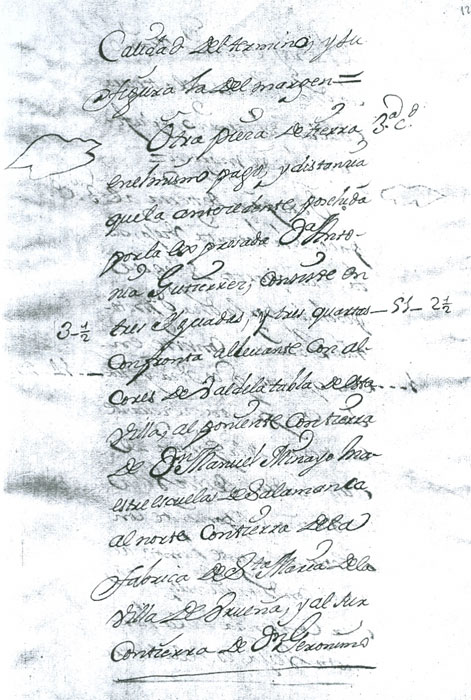 12
Calidad del termino, y su
figura la del margen =
Otra pieza de tierra 3ª Cd
en el mismo pago, y distancia
que la antecedente, posehida
por la ex privada Dª Anto-
nia Gutierrez, consiste en
3-½ tres Yguadas, y tres quartas 2½
confronta al levante con al-
cores de Valdelatabla de esta
villa, al poniente con tierra
de Dn Manuel Minayo Ma-
estre escuela de Salamanca,
al norte con tierra de la
Fabrica de Sta Maria de la
Villa de Urueña, y al sur
con tierra de Dn Geronimo